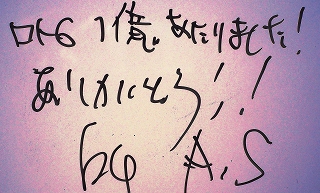 ロト6 1億。あたりました!
ありがとう!!
by A.S